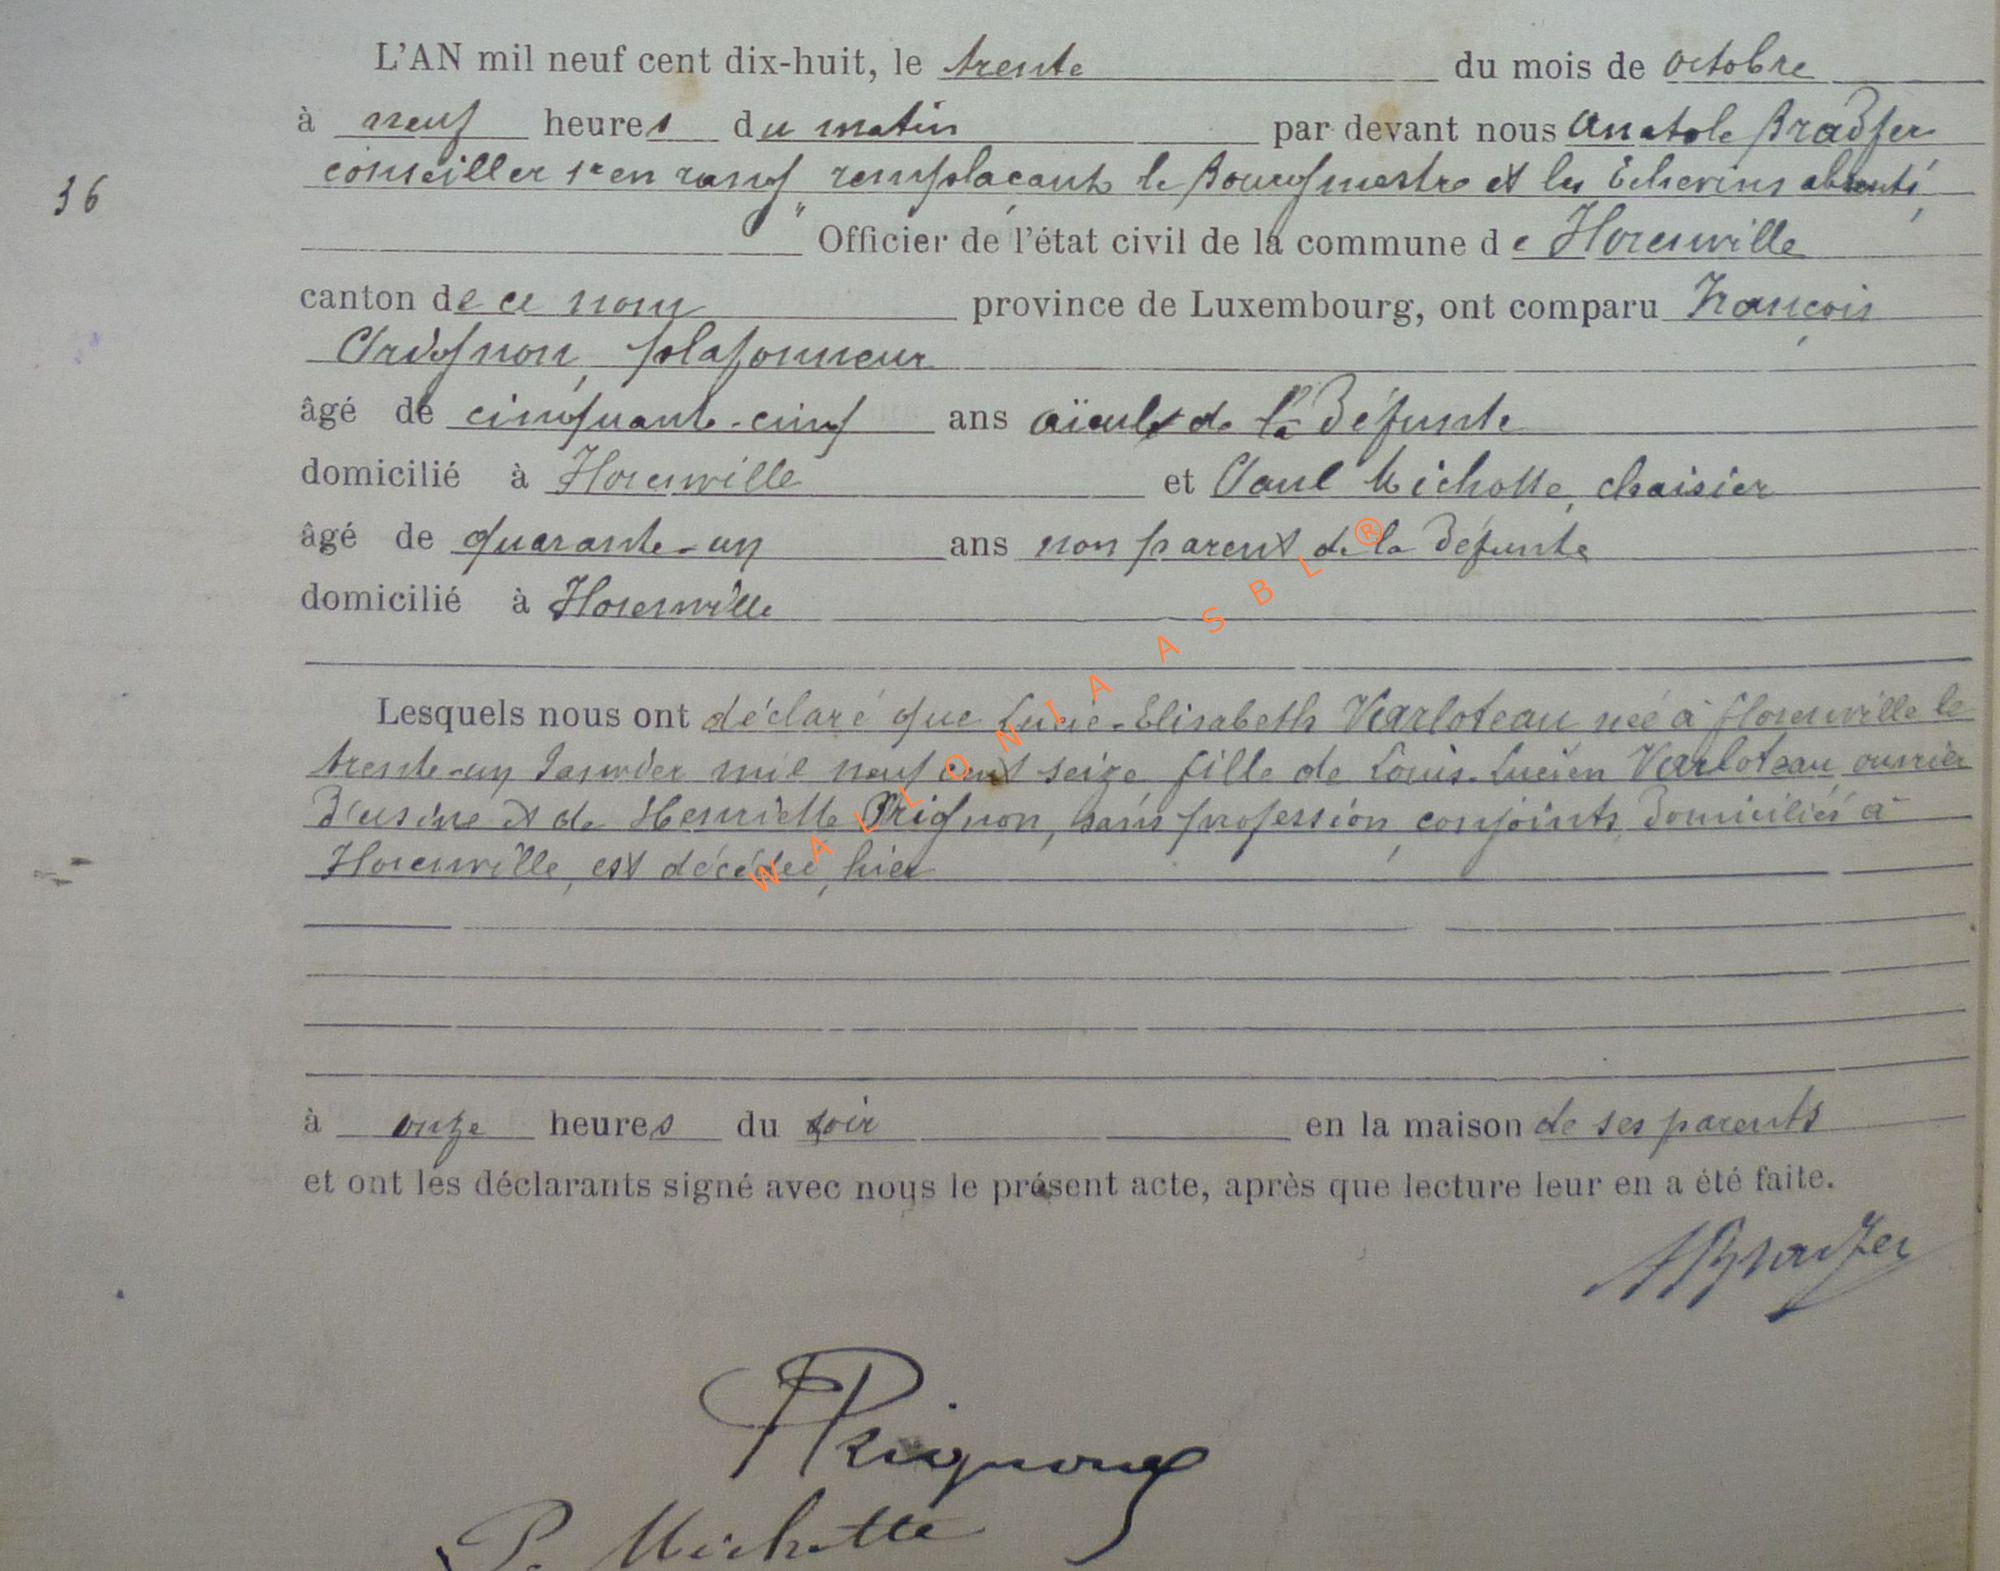 L'AN mil neuf cent dix-huit, le trente du mois de octobre
à neuf heures du matin par devant nous Anatole Bradfer
conseiller 1er en rang remplaçant le Bourgmestre et les Echevins absents,
36
" Officier de l'état civil de la commune de Florenville
canton de ce nom province de Luxembourg, ont comparu François
Prignon, plafonneur
âgé de cinquante-cinq ans aïeul de la défunte
domicilié à Florenville et Paul Michotte, chaisier
âgé de quarante-un ans non parent de la défunte
domicilié à Florenville
Lesquels nous ont déclaré que Lucie-Elisabeth Varloteau née à Florenville le
trente-un Janvier mil neuf cent seize, fille de Louis-Lucien Varloteau, ouvrier
d'usine et de Henriette Prignon, sans profession, conjoints, domiciliés à
Florenville, est décédée, hier
à onze heures du soir en la maison de ses parents
et ont les déclarants signé avec nous le présent acte, après que lecture leur en a été faite.
ABradfer
Prignon
P. Michotte
WALLONIA ASBL ®